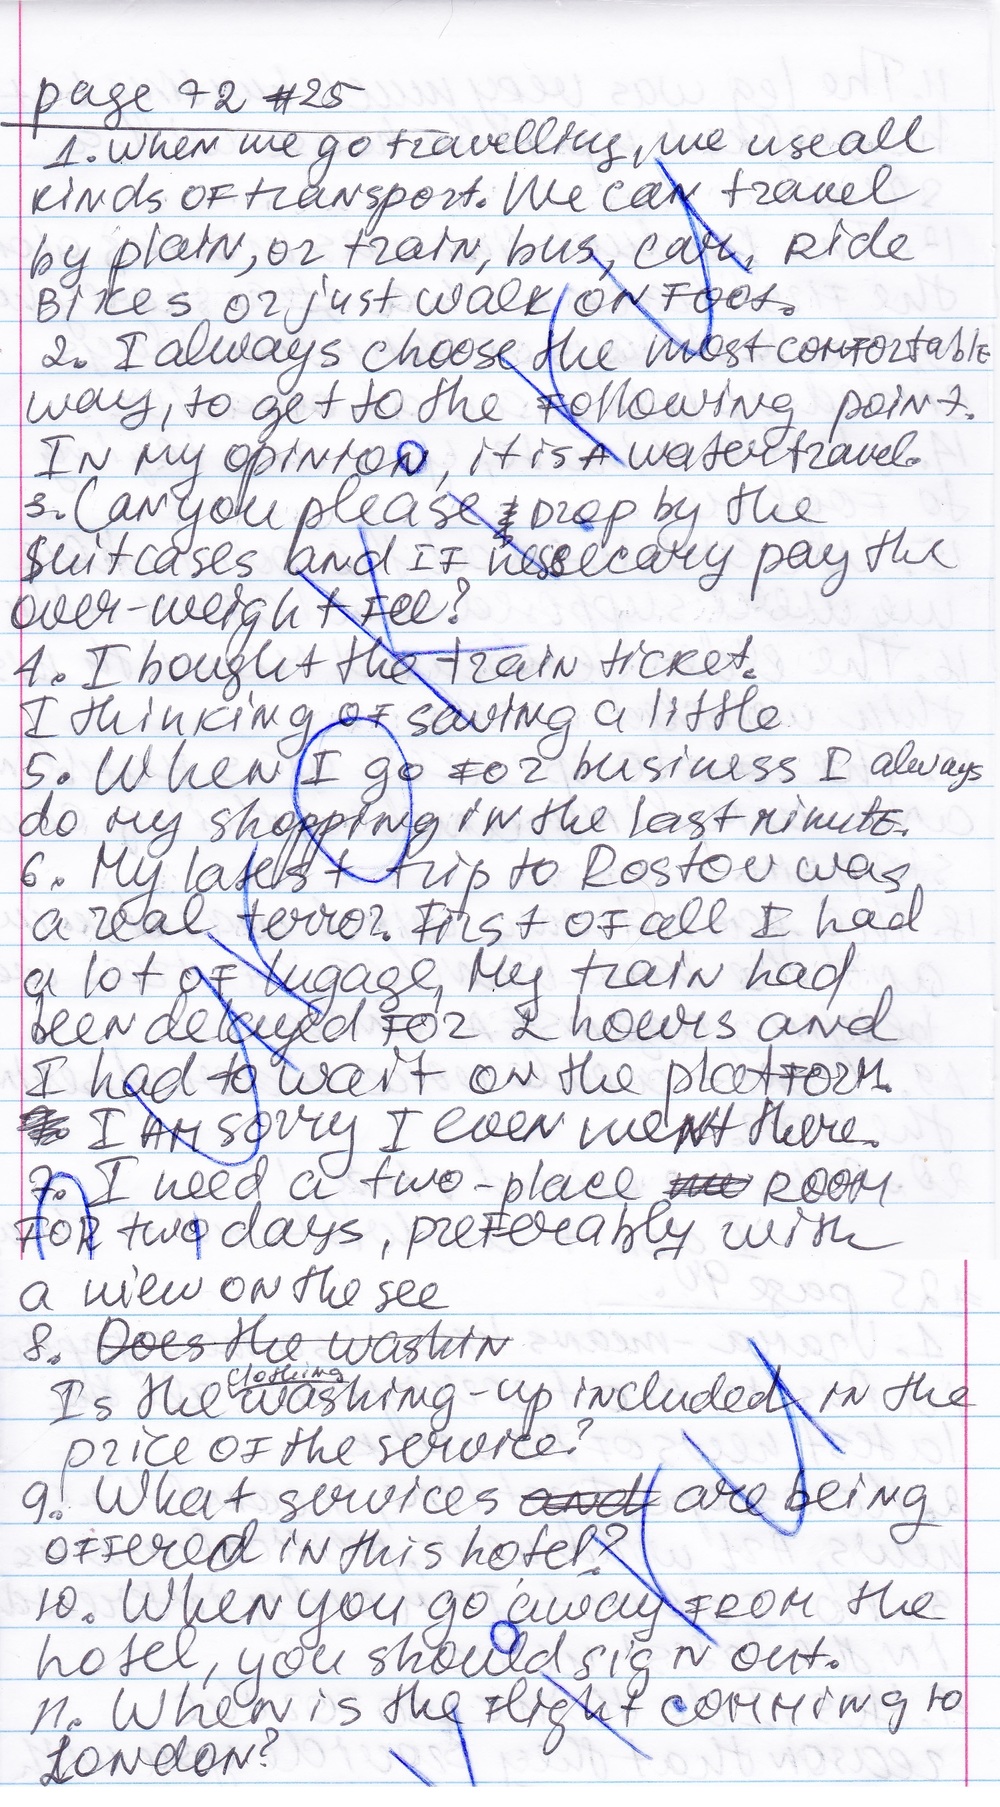 page 72 #25
1. When we go travelling, we use all
kinds of transport. We can travel
by plain, or train, bus, car, ride
bikes or just walk on foot.
2. I always choose the most comfortable
way, to get to the following point.
In my opinion, it is a water travel.
3. Can you please drop by the
suitcases and if nessecary pay the
over-weight fee?
4. I bought the train ticket.
I thinking of saving a little
5. When I go for business I always
do my shopping in the last minute.
6. My latest trip to Rostov was
a real terror. First of all I had
a lot of lugage, My train had
been delayed for 2 hours and
I had to wait on the platform.
I am sorry I even went there.
7. I need a two-place room
for two days, preferably with
a view on the see
8. Does the washin
clothing
Is the washing-up included in the
price of the service?
9. What services and are being
offered in this hotel?
10. When you go away from the
hotel, you should sign out.
11. When is the flight comming to
London?